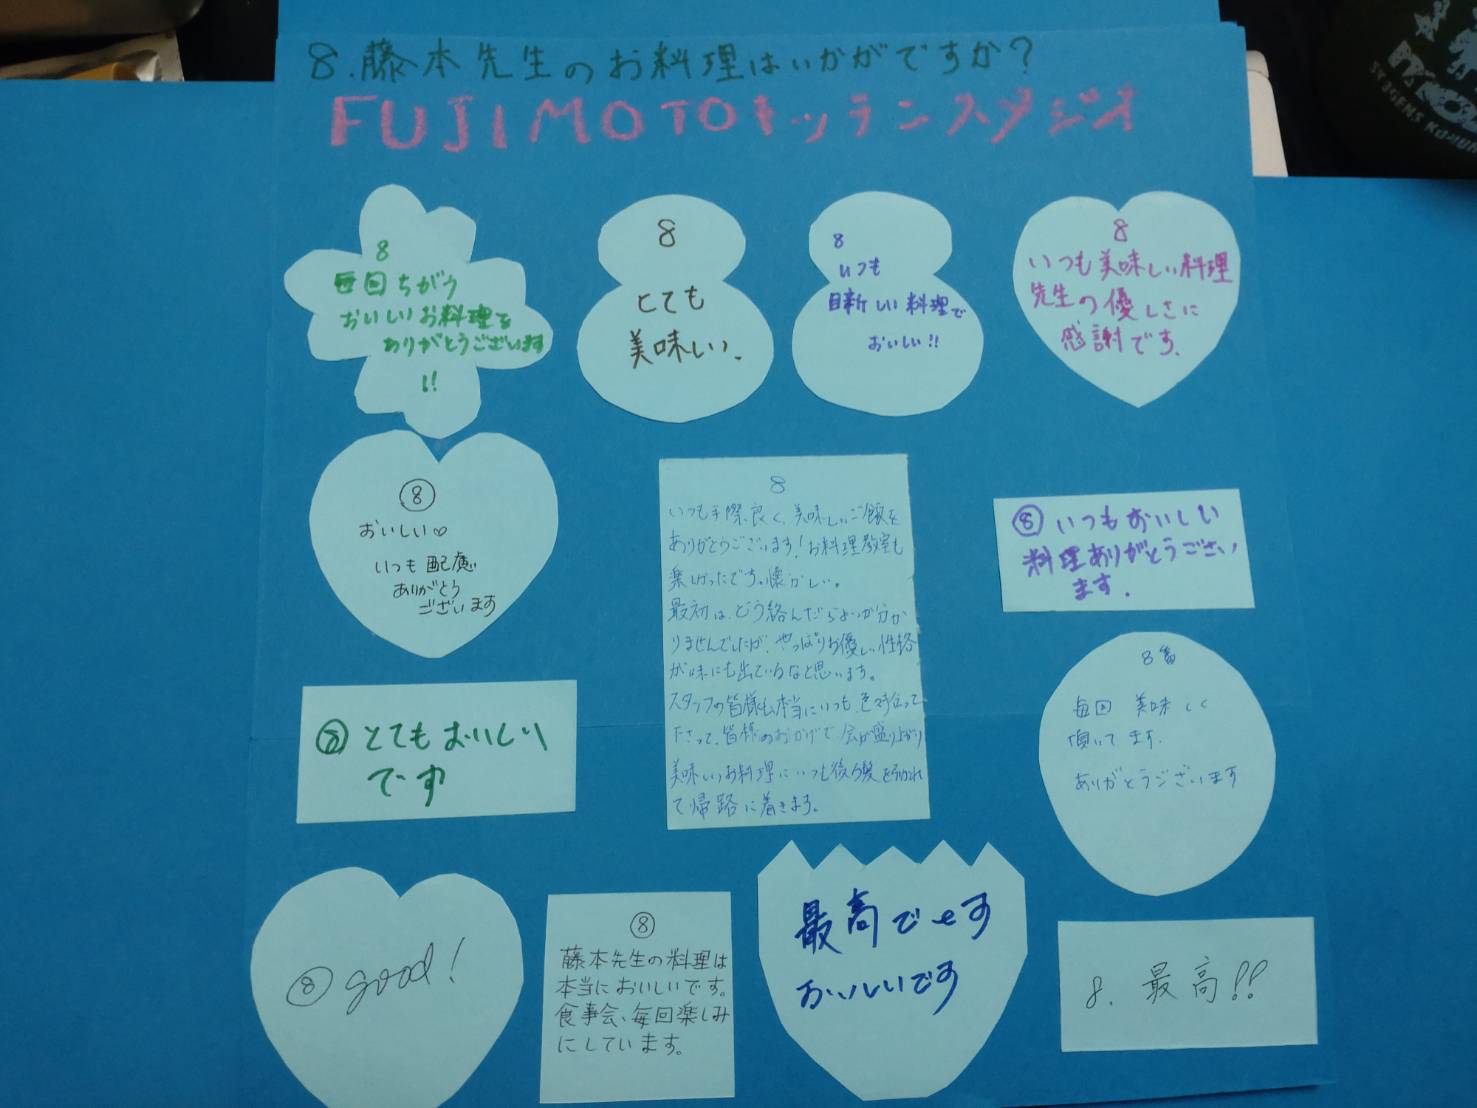 8.藤本先生のお料理はいかがですか?
FUJIMOTOキッチンスタジオ
8
毎回ちがう
おいしいお料理を
ありがとうございます
!!
8
とても
美味しい.
8
いつも
目新しい料理で
おいしい!!
8
いつも美味しい料理
先生の優しさに
感謝です.
⑧
おいしい♡
いつも配慮
ありがとう
ございます
8
いつも手際良く、美味しいご飯を
ありがとうございます!お料理教室も
楽しかったです。懐かしい。
最初は、どう絡んだらよいか分か
りませんでしたが、やっぱりお優しい性格
が味にも出ているなと思います。
スタッフの皆様も本当にいつも、色々手伝って
下さって、皆様のおかげで、会が盛り上がり
美味しいお料理に、いつも後ろ髪を引かれ
て帰路に着きます。
⑧いつもおいしい
料理ありがとうござい
ます.
⑧とてもおいしい
です
8番
毎回 美味しく
頂いてます.
ありがとうございます
⑧good!
⑧
藤本先生の料理は
本当においしいです。
食事会、毎回楽しみ
にしています。
最高です
おいしいです
8. 最高!!